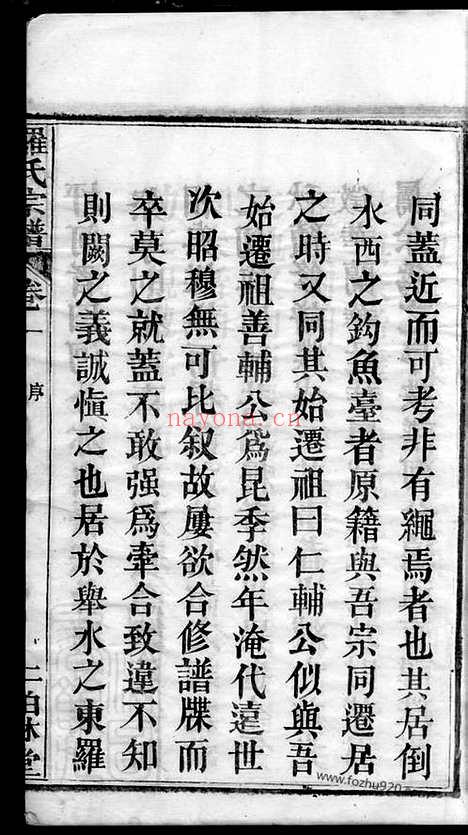 同蓋近而可考非有繩焉者也其居倒
水西之鈎魚臺者原籍與吾宗同遷居
之時又同其始遷祖曰仁輔公似與吾
始遷祖善輔公爲昆季然年淹代遠世
次昭穆無可比叙故屢欲合修譜牒而
卒莫之就蓋不敢强爲牽合致違不知
則闕之義誠愼之也居於舉水之東羅
羅氏宗譜
卷一
序
二柏林堂
nayona.cn
www.fozhu920.com